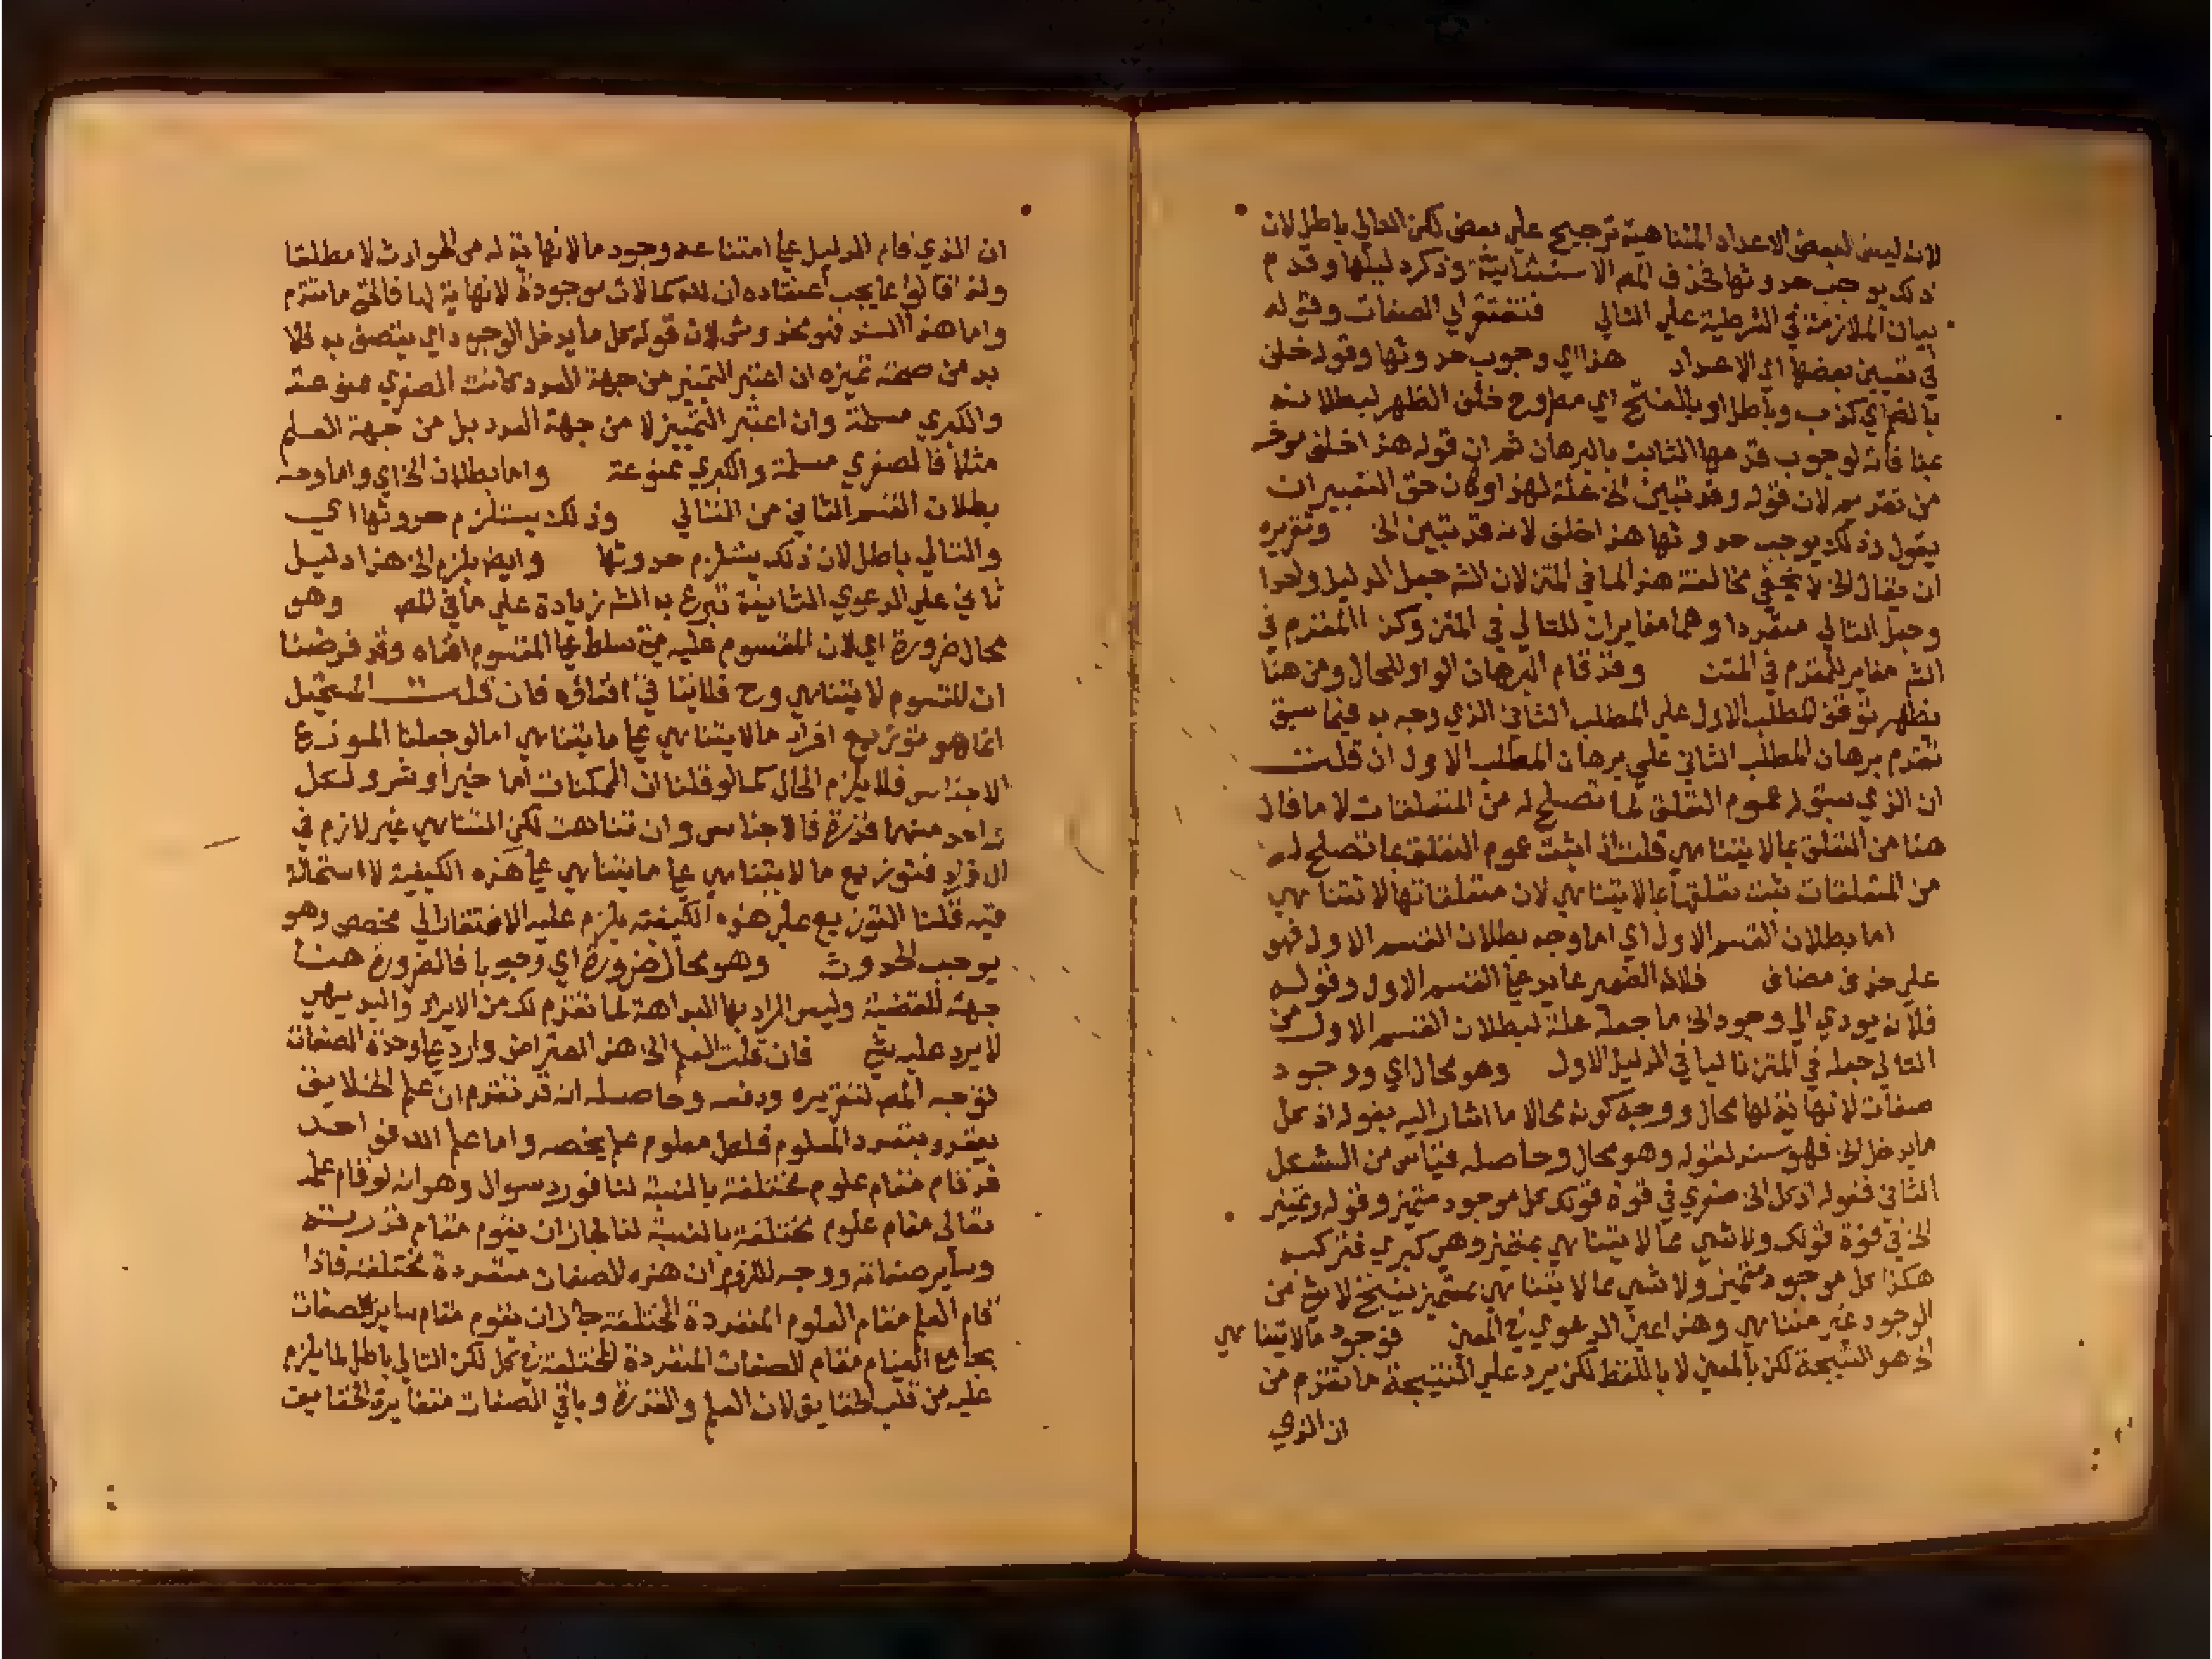 لانه ليس لبعض الاعداد المتناهية ترجيح علي بعض لكن التالي باطل لان
ذلك يوجب حدوثها فحذف المص الاستثنائية وذكر دليلها وقدم
بيان الملازمة في الشرطية علي التالي فتفتقر الي الصفات وقوله
في تعيين بعضها اي الاعداد هذا اي وجوب حدوثها وقوله خلف
بالضم اي كذب وباطل او بالفتح اي مطروح خلف الظهر لبطلانه
عنا فانه لوجوب قدمها الثابت بالبرهان ثم ان قوله هذا خلف موخر
من تقديم لان قوله وقد تبين الخ علة لهذا وكان حق التعبير ان
يقول وذلك يوجب حدوثها هذا خلف لانه قد تبين الخ وتقريره
ان يقال الخ لا يخفي مخالفة هذا لما في المتن لان الش جعل الدليل واحدا
وجعل التالي منفردا وهما مغايران للتالي في المتن وكذا المقدم في
الش مغاير للمقدم في المتن وقد قام البرهان الواو للحال ومن هنا
يظهر توقف المطلب الاول علي المطلب الثاني الذي وجه به فيما سبق
تقدم برهان المطلب الثاني علي برهان المطلب الاول ان قلت
ان الذي سبق له عموم التعلق لما تصلح له من المتعلقات لا ما قال
هنا من التعلق بما لا يتناهي قلت اذا ثبت عموم التعلق بما تصلح له
من المتعلقات ثبت تعلقها بما لا يتناهي لان متعلقاتها لا تتناهي
اما بطلان القسم الاول اي اما وجه بطلان القسم الاول فهو
علي حذف مضاف فلانه الضمير عايد علي القسم الاول وقوله
فلانه يودي الي وجود الخ ما جعله علة لبطلان القسم الاول من
التالي جعله في المتن تاليا في الدليل الاول وهو محال اي ووجود
صفات لا نهاية لها محال ووجه كونه محالا ما اشار اليه بقوله اذ كل
ما يدخل الخ فهو سند لقوله وهو محال وحاصله قياس من الشكل
الثاني فقوله اذ كل الخ صغري في قوة قولك كل موجود متميز وقوله وتمييز
الخ في قوة قولك ولا شي مما لا يتناهي بمتميز وهي كبري فتركب
هكذا كل موجود متميز ولا شي مما لا يتناهي بمتميز ينتج لا شي من
الوجود غير متناهي وهذا عين الدعوي في المعني فوجود ما لا يتناهي
الخ هو النتيجة لكن بالمعني لا باللفظ لكن يرد علي النتيجة ما تقدم من
ان الذي
ان الذي قام الدليل علي امتناعه وجود ما لا نهاية له من الحوادث لا مطلقا
ولذا قالوا مما يجب اعتقاده ان لله كمالات موجودة لا نهاية لها فالحق ما تقدم
واما هذا السند فهو مخدوش لان قوله كل ما يدخل الوجود اي يتصف به فلا
بد من صحة تميزه ان اعتبر التمييز من جهة العدد كانت الصغري ممنوعة
والكبري مسلمة وان اعتبر التمييز لا من جهة العدد بل من جهة العلم
مثلا فالصغري مسلمة والكبري ممنوعة واما بطلان الخ اي واما وجه
بطلان القسم الثاني من التالي وذلك يستلزم حدوثها اي
والتالي باطل لان ذلك يستلزم حدوثها وايضا يلزم الخ هذا دليل
ثاني علي الدعوي الثانية تبرع به الش زيادة علي ما في المص وهو
محال ضرورة اي لان المقسوم عليه متي سلط علي المقسوم افناه وقد فرضنا
ان المقسوم لا يتناهي وح فلا يتاتي افناؤه فان قلت المستحيل
انما هو توزيع افراد ما لا يتناهي علي ما يتناهي اما لو جعلنا الموزع
الاجناس فلا يلزم المحال كما لو قلنا ان الممكنات اما خير او شر ولكل
واحد منهما قدرة فالاجناس وان تناهت لكن التناهي غير لازم في
الافراد فتوزيع ما لا يتناهي علي ما يتناهي علي هذه الكيفية لا استحالة
فيه قلنا التوزيع علي هذه الكيفية يلزم عليه الافتقار الي مخصص وهو
يوجب الحدوث وهو محال ضرورة اي وجوبا فالضرورة هنا
جهة للقضية وليس المراد بها البداهة لما تقدم لك من الايراد والبديهي
لا يرد عليه شي فان قلت العلم الخ هذا اعتراض وارد علي وحدة الصفات
توجه المص لتقريره ودفعه وحاصله انه قد تقدم ان علم الخلايق
يتعدد بتعدد المعلوم فلكل معلوم علم يخصه واما علم الله فواحد
قد قام مقام علوم مختلفة بالنسبة لنا فورد سوال وهو انه لو قام علمه
تعالي مقام علوم مختلفة بالنسبة لنا لجاز ان يقوم مقام قدرته
وساير صفاته ووجه اللزوم ان هذه الصفات متعددة مختلفة فاذا
قام العلم مقام العلوم المتعددة المختلفة جاز ان يقوم مقام ساير الصفات
بجامع القيام مقام الصفات المتعددة المختلفة في كل لكن التالي باطل لما يلزم
عليه من قلب الحقايق لان العلم والقدرة وباقي الصفات متغايرة الحقايق